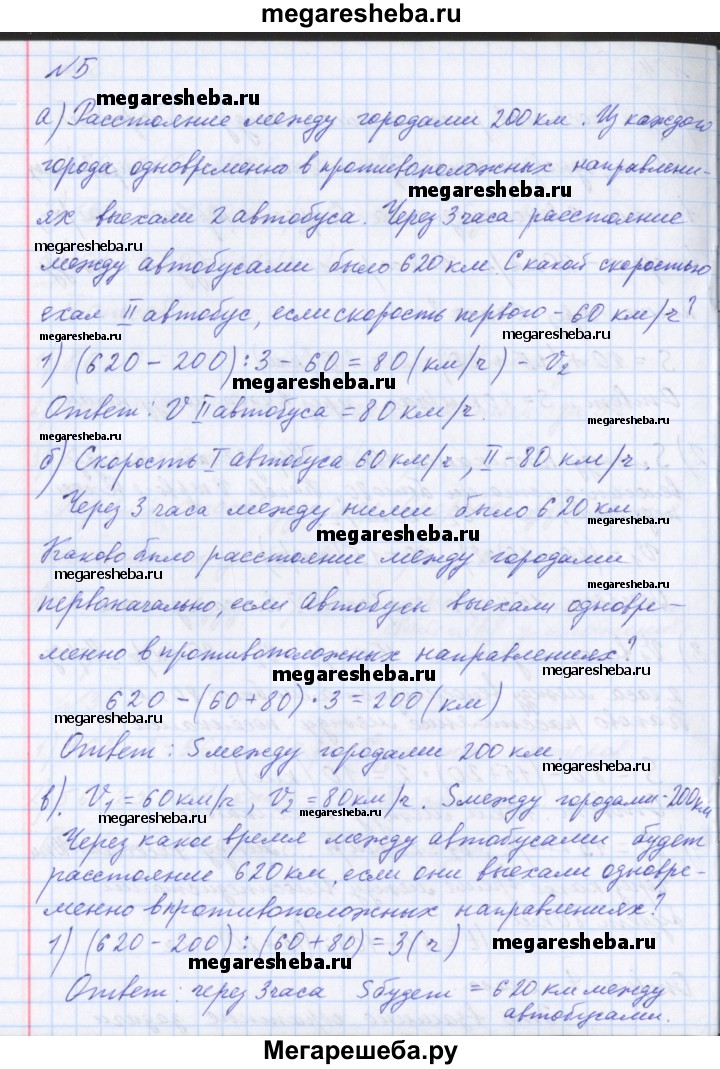 megaresheba.ru
№5
megaresheba.ru
а) Расстояние между городами 200 км. Из каждого
города одновременно в противоположных направлени-
megaresheba.ru
ях выехали 2 автобуса. Через 3 часа расстояние
megaresheba.ru
между автобусами было 620 км. С какой скоростью
ехал II автобус, если скорость первого - 60 км/ч?
megaresheba.ru megaresheba.ru
1) (620 - 200) : 3 - 60 = 80 (км/ч) - V₂
megaresheba.ru
Ответ: V II автобуса = 80 км/ч.
megaresheba.ru megaresheba.ru
б) Скорость I автобуса 60 км/ч, II - 80 км/ч.
Через 3 часа между ними было 620 км.
megaresheba.ru
Каково было расстояние между городами
megaresheba.ru megaresheba.ru
первоначально, если автобусы выехали одновре-
менно в противоположных направлениях?
megaresheba.ru megaresheba.ru
620 - (60 + 80) · 3 = 200 (км)
megaresheba.ru
Ответ: S между городами 200 км
megaresheba.ru
в). V₁ = 60 км/ч, V₂ = 80 км/ч. S между городами - 200 км
megaresheba.ru megaresheba.ru
Через какое время между автобусами будет
megaresheba.ru
расстояние 620 км, если они выехали одновре-
megaresheba.ru
менно в противоположных направлениях?
1) (620 - 200) : (60 + 80) = 3 (ч)
megaresheba.ru megaresheba.ru
Ответ: через 3 часа S будет = 620 км между
автобусами.
Мегарешеба.ру